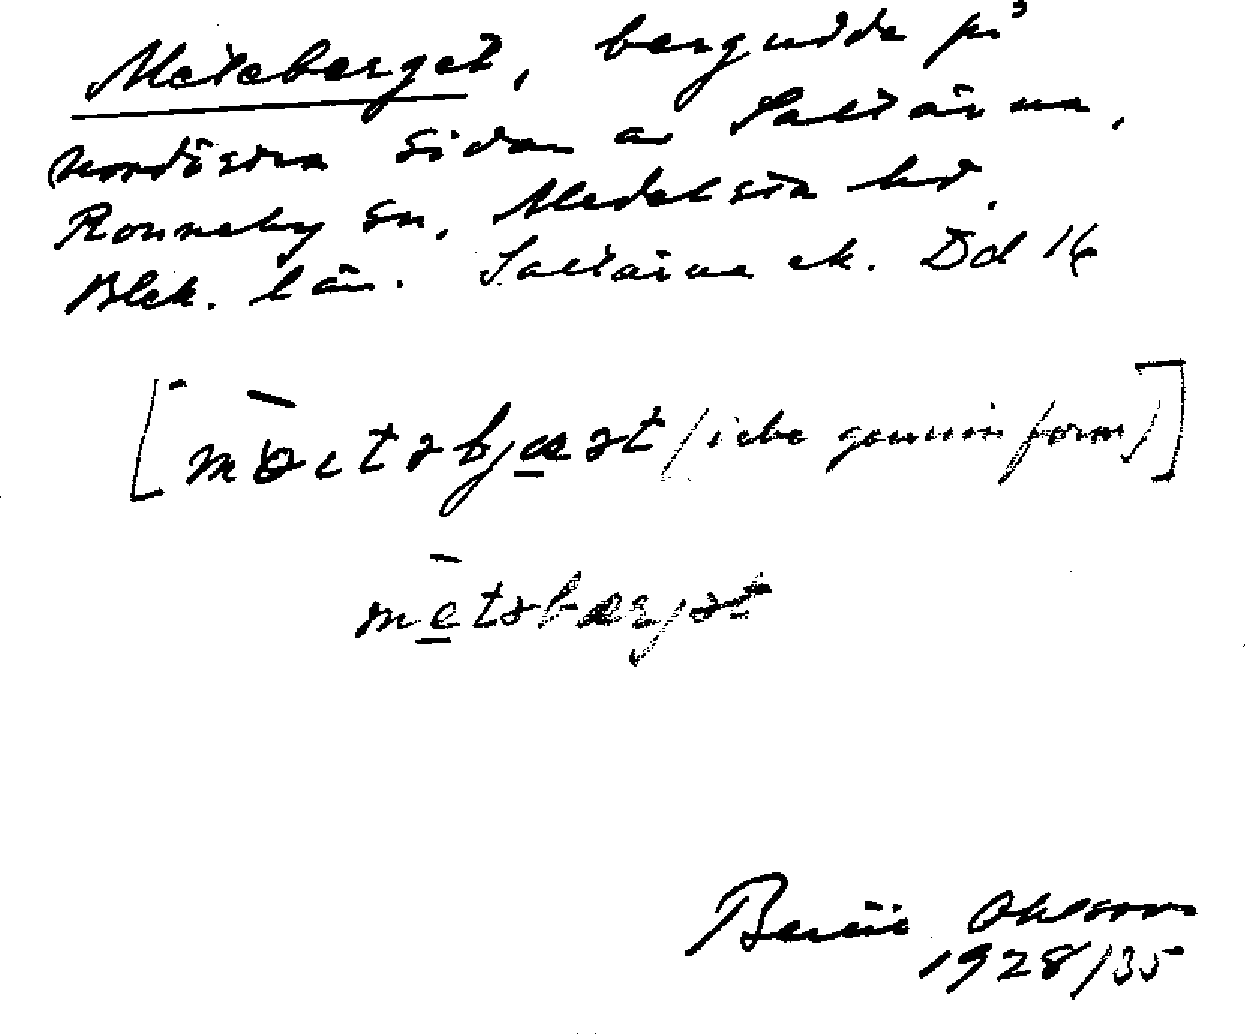 Meteberget, bergudde på
nordöstra sidan av Saltärna,
Ronneby sn, Medelsta hd,
Blek. län. Saltärna ek. Dd 16
[mòetəbjæət (icke genuin form)]
mètəbærjət
Bertil Ohlsson
1928/35